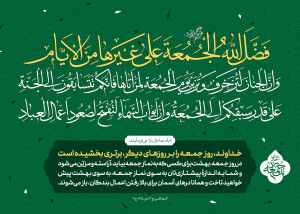 فَضَّلَ اللهُ الْجُمُعَةَ عَلَى غَيْرِهَا مِنَ الْأَيَّامِ
وَإِنَّ الْجِنَانَ لَتُزَخْرَفُ وَتُزَيَّنُ يَوْمَ الْجُمُعَةِ لِمَنْ أَتَاهَا فَإِنَّكُمْ تَتَسَابَقُونَ إِلَى الْجَنَّةِ
عَلَى قَدْرِ سَبْقِكُمْ إِلَى الْجُمُعَةِ وَإِنَّ أَبْوَابَ السَّمَاءِ لَتُفَتَّحُ لِصُعُودِ أَعْمَالِ الْعِبَادِ
امام صادق (ع) می‌فرمایند:
خداوند، روز جمعه را بر روزهای دیگر، برتری بخشیده است
در روز جمعه بهشت برای کسی که به نماز جمعه بیاید، آراسته و مزیّن می‌شود
و شما به اندازهٔ پیشتازی‌تان به سوی نماز جمعه، به سوی بهشت پیش
خواهید تاخت و همانا درهای آسمان برای بالا رفتن اعمال بندگان، باز می‌شوند.